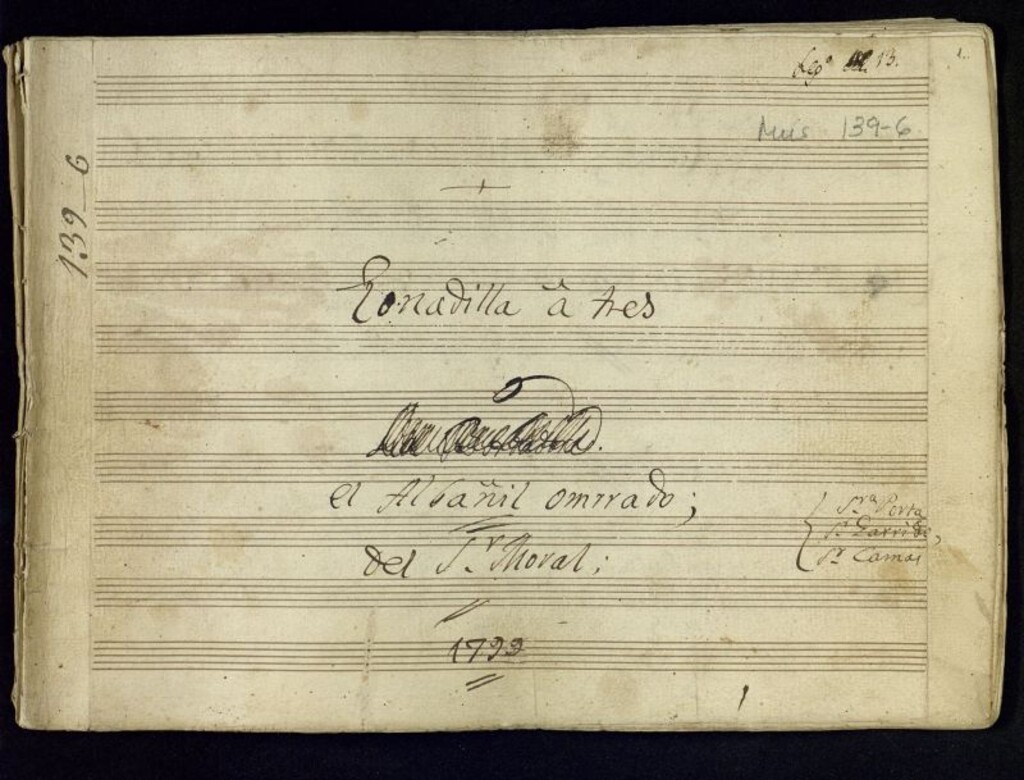 Leg.º 13.
1..
Mus 139-6
139_6
Tonadilla â tres
el Albañil omrrado;
del S.r Moral;
1799
S.ra Porta
S.r Garrido,
S.r Camas
1